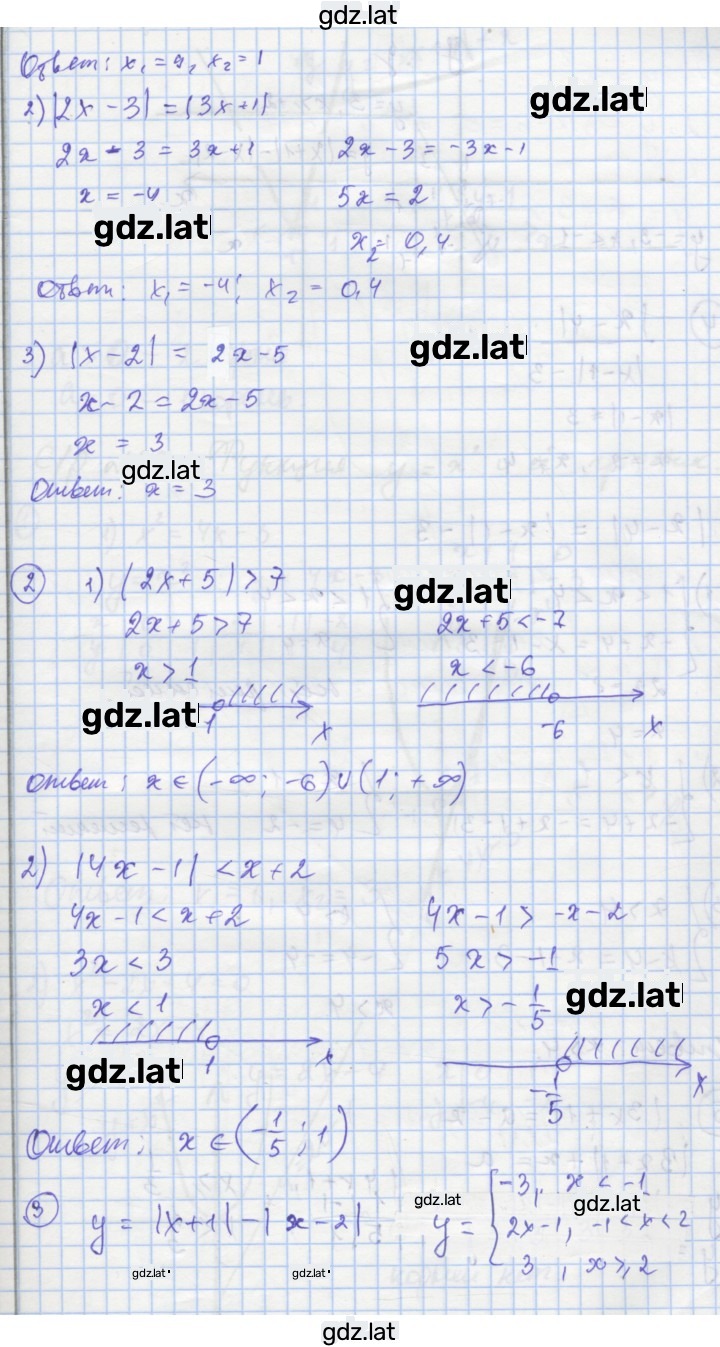 gdz.lat
Ответ: x₁ = 9, x₂ = 1
2) |2x - 3| = |3x + 1| gdz.lat
2x - 3 = 3x + 1 2x - 3 = -3x - 1
x = -4 5x = 2
gdz.lat x₂ = 0,4
Ответ: x₁ = -4; x₂ = 0,4
3) |x - 2| = 2x - 5 gdz.lat
x - 2 = 2x - 5
x = 3
gdz.lat
Ответ: x = 3
2 1) |2x + 5| > 7 gdz.lat
2x + 5 > 7 2x + 5 < -7
x > 1 x < -6
gdz.lat 1 x -6 x
Ответ: x ∈ (-∞; -6) ∪ (1; +∞)
2) |4x - 1| < x + 2
4x - 1 < x + 2 4x - 1 > -x - 2
3x < 3 5x > -1
x < 1 x > - 1/5 gdz.lat
gdz.lat 1 x - 1/5 x
Ответ: x ∈ (- 1/5; 1)
3 y = |x + 1| - |x - 2| y = { -3, x < -1
gdz.lat gdz.lat
2x - 1, -1 < x < 2
3, x ≥ 2
gdz.lat gdz.lat
gdz.lat